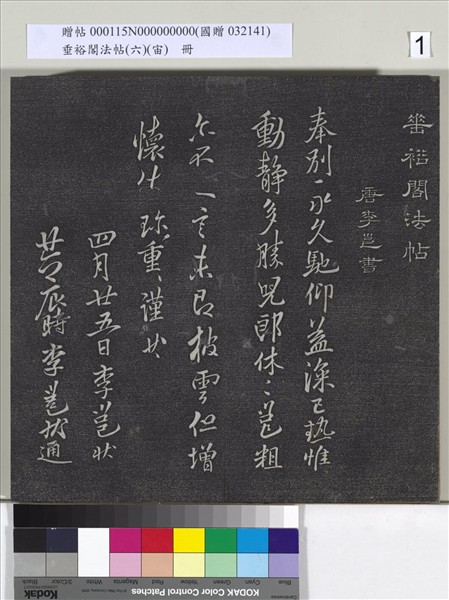 贈帖 000115N000000000(國贈 032141)
垂裕閣法帖(六)(宙) 冊
1
垂裕閣法帖
唐李邕書
奉別永久馳仰益深已熱惟
動靜多勝兒郎休〻邕粗
尒不一言未即披雲但增
懷仰珍重謹狀
四月廿五日李邕狀
辰時李邕狀通
KODAK Color Control Patches
Blue Cyan Green Yellow Red Magenta White 3/Color Black
Kodak